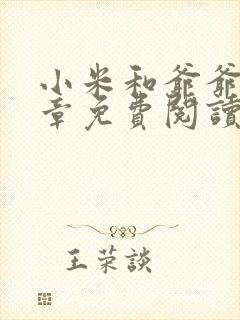 小米和爺爺
章免費閱讀
王荣談